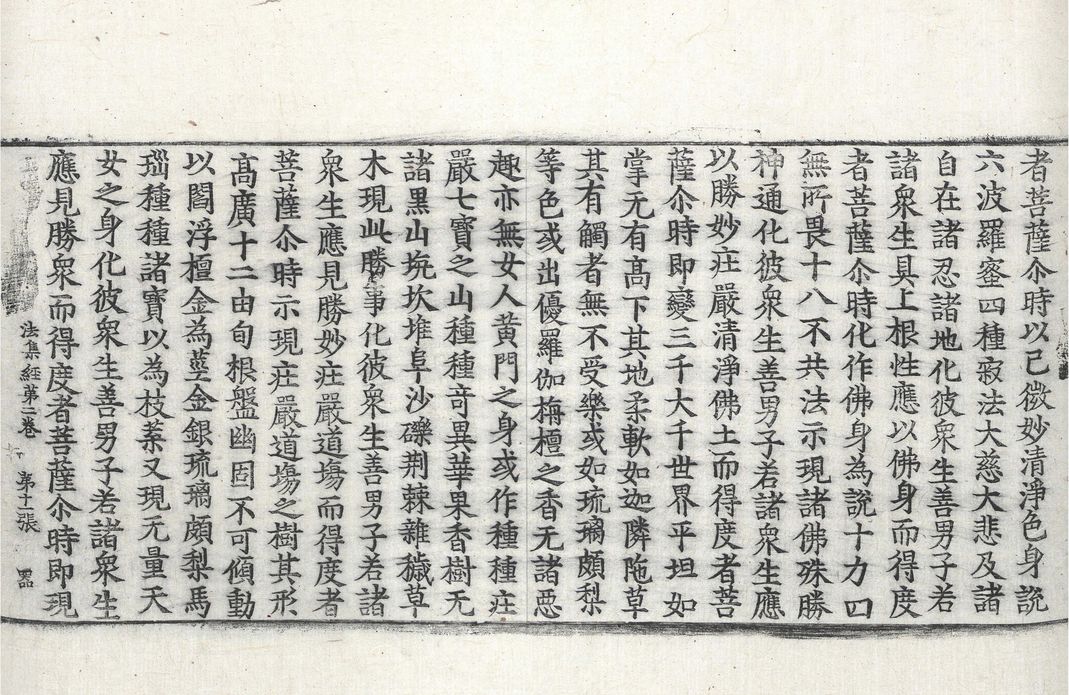 者菩薩尒時以已微妙清淨色身說
六波羅蜜四種寂法大慈大悲及諸
自在諸忍諸地化彼衆生善男子若
諸衆生具上根性應以佛身而得度
者菩薩尒時化作佛身為說十力四
無所畏十八不共法示現諸佛殊勝
神通化彼衆生善男子若諸衆生應
以勝妙庄嚴清淨佛土而得度者菩
薩尒時即變三千大千世界平坦如
掌无有高下其地柔軟如迦隣陁草
其有觸者無不受樂或如琉璃頗梨
等色或出優羅伽栴檀之香无諸惡
趣亦無女人黄門之身或作種種庄
嚴七寶之山種種奇異華果香樹无
諸黒山坑坎堆阜沙礫荆棘雜穢草
木現此勝事化彼衆生善男子若諸
衆生應見勝妙庄嚴道場而得度者
菩薩尒時示現庄嚴道場之樹其形
高廣十二由旬根盤幽固不可傾動
以閻浮檀金為莖金銀琉璃頗梨馬
瑙種種諸寶以為枝葉又現无量天
女之身化彼衆生善男子若諸衆生
應見勝衆而得度者菩薩尒時即現
法集經第二卷 第十一張 器